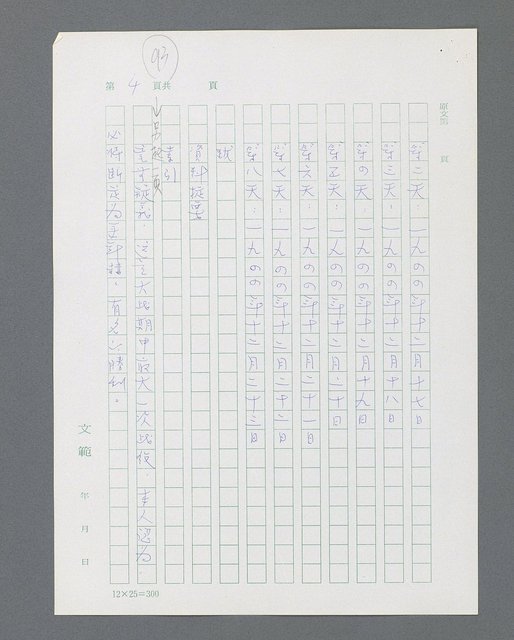 93
第 4 頁共 頁
原文第 頁
第二天:一九四四年十二月十七日
第三天:一九四四年十二月十八日
第四天:一九四四年十二月十九日
第五天:一九四四年十二月二十日
第六天:一九四四年十二月二十一日
第七天:一九四四年十二月二十二日
第八天:一九四四年十二月二十三日
跋
資料提要
索引
↓另起一頁
這是大戰期中最大一次戰役,本人認為,
必將斷定為 有名之勝利。
文範
年 月 日
12×25=300